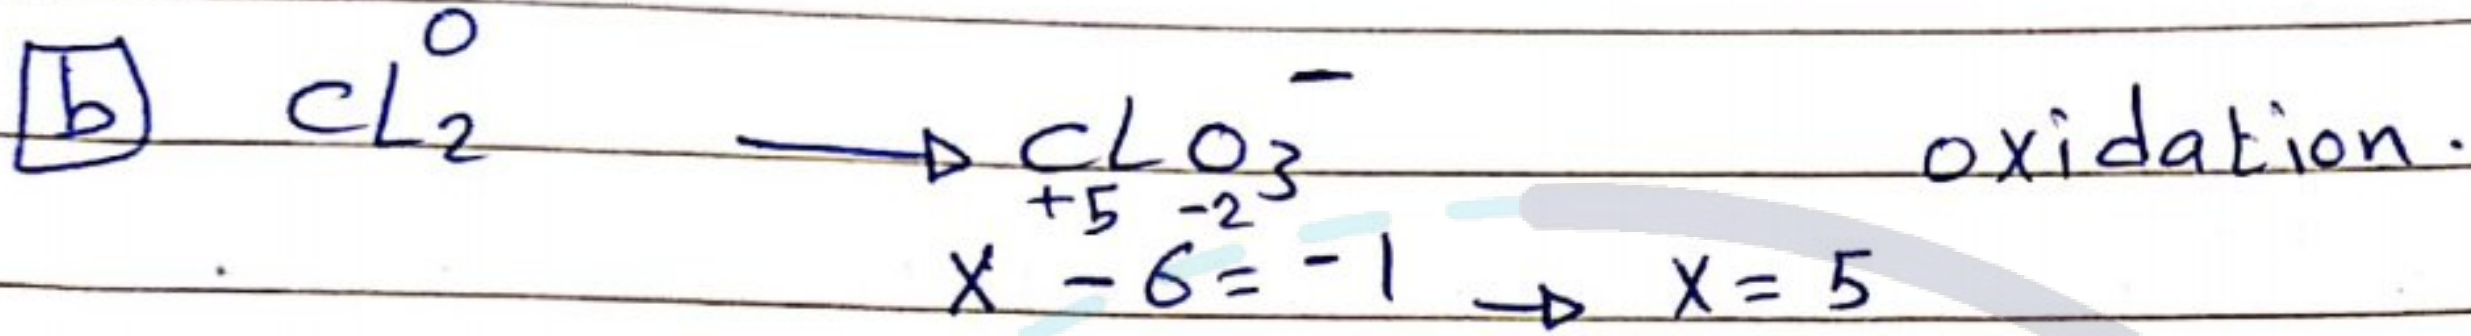 b CL₂⁰ → CLO₃⁻ oxidation.
+5 -2
X - 6 = -1 → X = 5